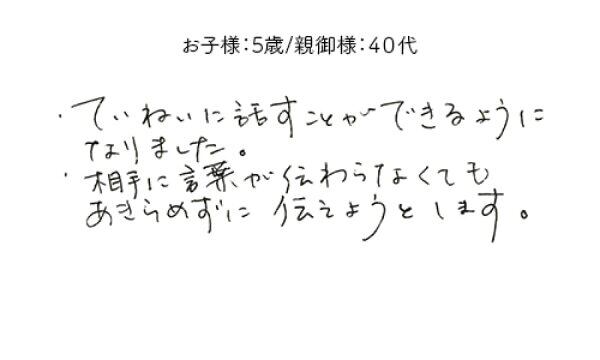 お子様：5歳/親御様：40代
・ていねいに話すことができるように
なりました。
・相手に言葉が伝わらなくても
あきらめずに伝えようとします。